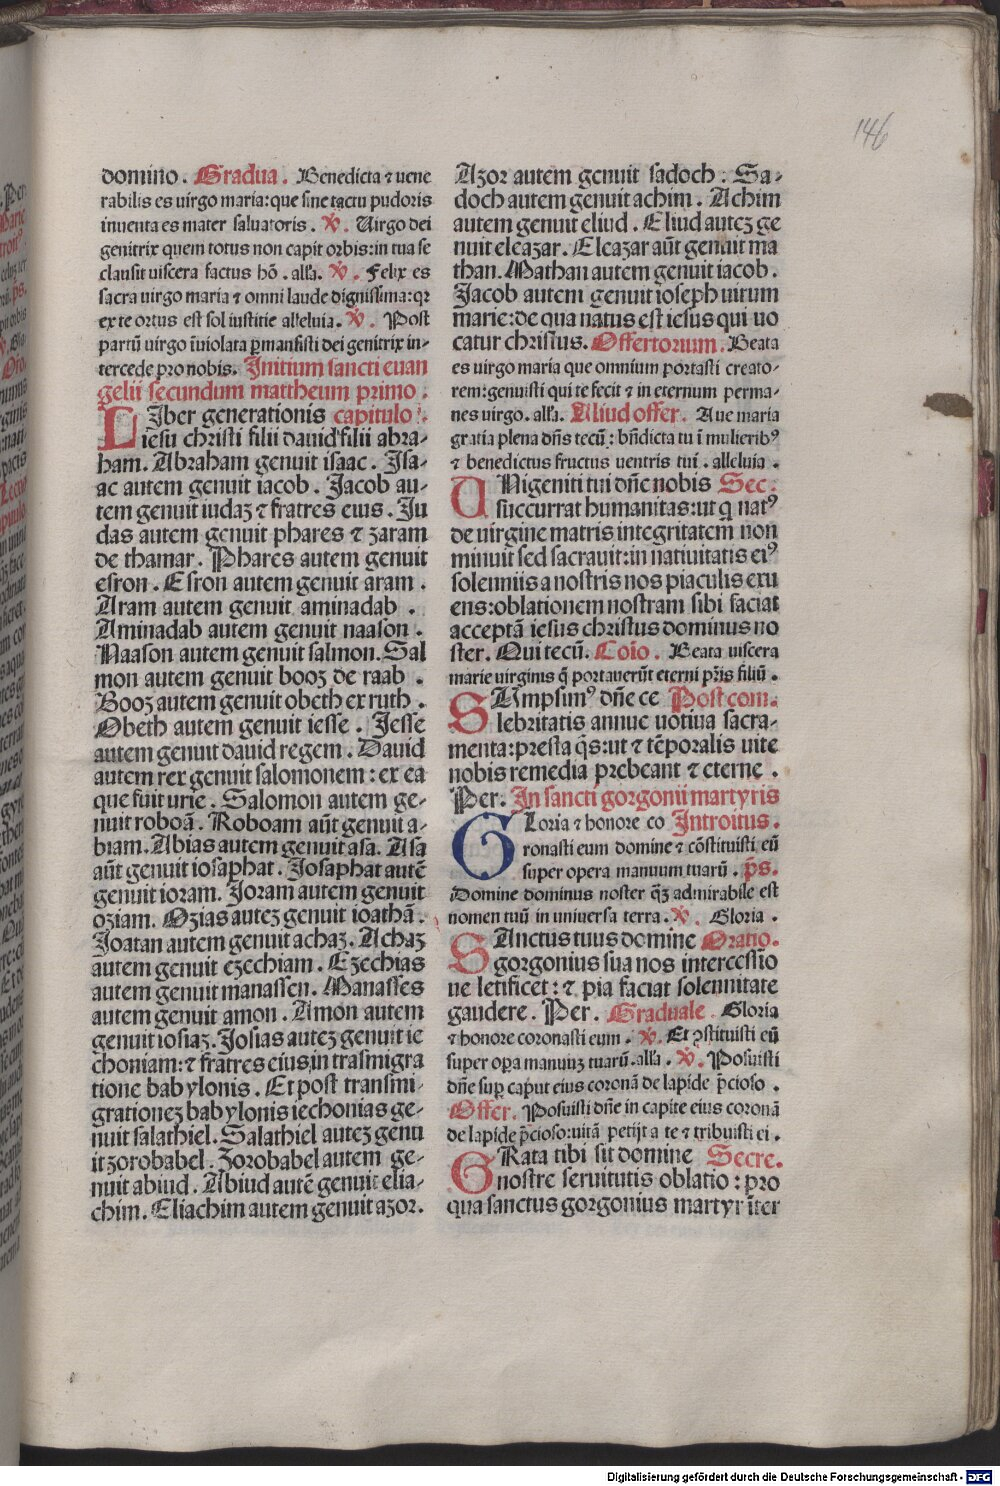 146
domino. Gradua. Benedicta ⁊ vene
rabilis es virgo maria: que sine tactu pudoris
inuenta es mater saluatoris. ℣. Uirgo dei
genitrix quem totus non capit orbis: in tua se
clausit viscera factus hō. alľa. ℣. Felix es
sacra virgo maria ⁊ omni laude dignissima: qr
ex te ortus est sol iustitie alleluia. ℣. Post
partū virgo īuiolata ꝑmansisti dei genitrix in-
tercede pro nobis. Initium sancti euan
gelii secundum mattheum primo.
LIber generationis capitulo.
iesu christi filii dauid filii abra-
ham. Abraham genuit isaac. Isa-
ac autem genuit iacob. Jacob au-
tem genuit iudaʒ ⁊ fratres eius. Ju
das autem genuit phares ⁊ zaram
de thamar. Phares autem genuit
esron. Esron autem genuit aram.
Aram autem genuit aminadab.
Aminadab autem genuit naason.
Naason autem genuit salmon. Sal
mon autem genuit booʒ de raab.
Booʒ autem genuit obeth ex ruth.
Obeth autem genuit iesse. Jesse
autem genuit dauid regem. Dauid
autem rex genuit salomonem: ex ea
que fuit urie. Salomon autem ge-
nuit roboā. Roboam aūt genuit a-
biam. Abias autem genuit asa. Asa
aūt genuit iosaphat. Josaphat autē
genuit ioram. Joram autem genuit
oziam. Ozias auteʒ genuit ioathā.
Joatan autem genuit achaʒ. Achaʒ
autem genuit ezechiam. Ezechias
autem genuit manassen. Manasses
autem genuit amon. Amon autem
genuit iosiaʒ. Josias auteʒ genuit ie
choniam: ⁊ fratres eius in trasmigra
tione babylonis. Et post transmi-
grationeʒ babylonis iechonias ge-
nuit salathiel. Salathiel auteʒ genu
it zorobabel. Zorobabel autem ge-
nuit abiud. Abiud autē genuit elia-
chim. Eliachim autem genuit azor.
Azor autem genuit sadoch. Sa-
doch autem genuit achim. Achim
autem genuit eliud. Eliud auteʒ ge
nuit eleazar. Eleazar aūt genuit ma
than. Mathan autem genuit iacob.
Jacob autem genuit ioseph uirum
marie: de qua natus est iesus qui uo
catur christus. Offertorium. Beata
es virgo maria que omnium portasti creato-
rem: genuisti qui te fecit ⁊ in eternum perma-
nes virgo. alľa. Aliud offer. Aue maria
gratia plena dn̄s tecū: bn̄dicta tu ī mulieribꝰ
⁊ benedictus fructus uentris tui. alleluia.
UNigeniti tui dn̄e nobis Sec.
succurrat humanitas: ut q̄ natꝰ
de uirgine matris integritatem non
minuit sed sacrauit: in natiuitatis eiꝰ
solenniis a nostris nos piaculis exu
ens: oblationem nostram sibi faciat
acceptā iesus christus dominus no
ster. Qui tecū. Coīo. Beata uiscera
marie uirginis q̄ portauerūt eterni pr̄is filiū.
SUmpsimꝰ dn̄e ce Postcom.
lebritatis annue uotiua sacra-
menta: presta q̄s: ut ⁊ tēporalis uite
nobis remedia prebeant ⁊ eterne.
Per. In sancti gorgonii martyris
GLoria ⁊ honore co Introitus.
ronasti eum domine ⁊ cōstituisti eū
super opera manuum tuarū. p̄s.
Domine dominus noster q̄ʒ admirabile est
nomen tuū in uniuersa terra. ℣. Gloria.
SAnctus tuus domine Oratio.
gorgonius sua nos intercessiō
ne letificet: ⁊ pia faciat solennitate
gaudere. Per. Graduale. Gloria
⁊ honore coronasti eum. ℣. Et ꝯstituisti eū
super opa manuuʒ tuarū. alľa. ℣. Posuisti
dn̄e suꝑ caput eius coronā de lapide p̄cioso.
Offer. Posuisti dn̄e in capite eius coronā
de lapide p̄cioso: uitā petijt a te ⁊ tribuisti ei.
GRata tibi sit domine Secre.
nostre seruitutis oblatio: pro
qua sanctus gorgonius martyr īter
Digitalisierung gefördert durch die Deutsche Forschungsgemeinschaft - DFG